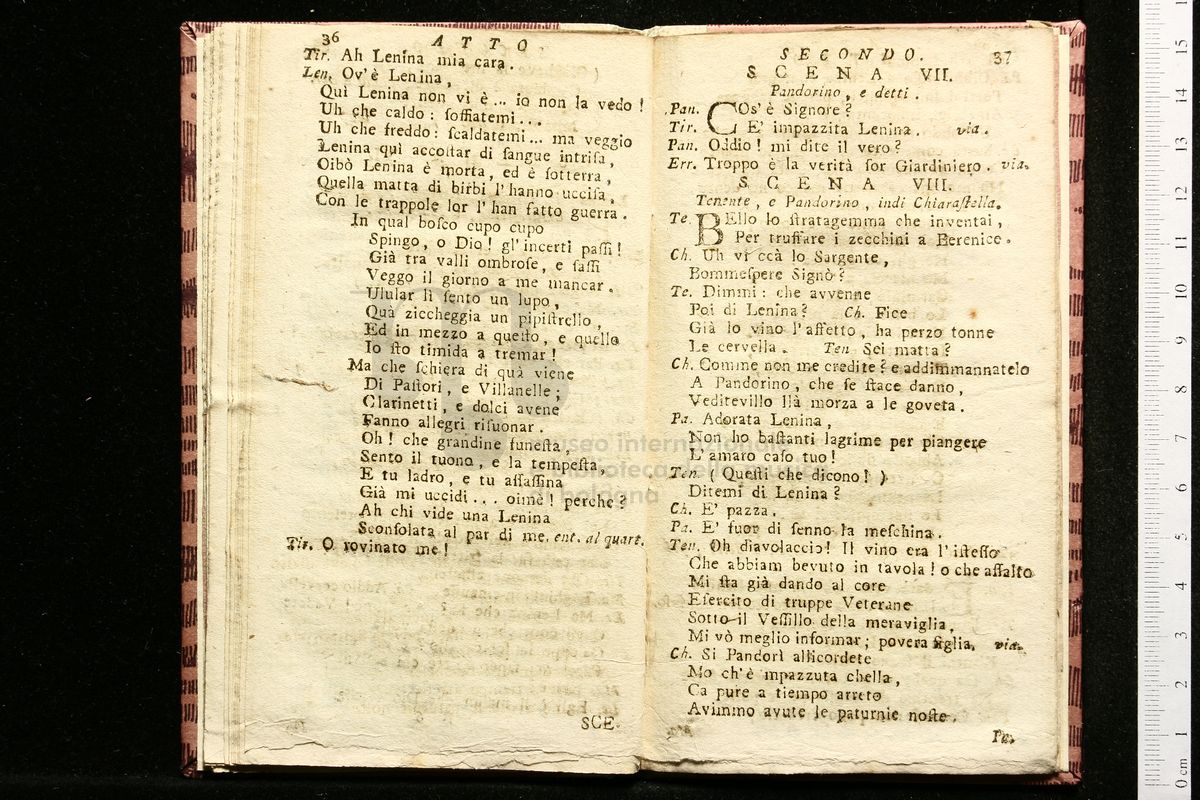 36 ATTO
Tir. Ah Lenina mia cara.
Len. Ov'è Lenina,
Quì Lenina non vi è... io non la vedo!
Uh che caldo: ſoffiatemi...
Uh che freddo: ſcaldatemi... ma veggio
Lenina quì accoſtar di ſangue intriſa,
Oibò Lenina è morta, ed è ſotterra,
Quella matta di birbi l'hanno ucciſa,
Con le trappole lor l'han fatto guerra.
In qual boſco cupo cupo
Spingo, o Dio! gl'incerti paſſi!
Già tra valli ombroſe, e ſaſſi
Veggo il giorno a me mancar.
Ulular lì ſento un lupo,
Quà ziccheggia un pipiſtrello,
Ed in mezzo a queſto, e quello
Io ſto timida a tremar!
Ma che ſchiera di quà viene
Di Paſtori, e Villanelle;
Clarinetti, e dolci avene
Fanno allegri riſuonar.
Oh! che grandine funeſta,
Sento il tuono, e la tempeſta,
E tu ladro, e tu aſſaſſina
Già mi uccidi... oimè! perche?
Ah chi vide una Lenina
Sconſolata al par di me. ent. al quart.
Tir. O rovinato me!
SCE-
SECONDO. 37
SCENA VII.
Pandorino, e detti.
Pan. COs'è Signore?
Tir. E' impazzita Lenina. via.
Pan. Oddio! mi dite il vero?
Err. Troppo è la verità ſor Giardiniero. via.
SCENA VIII.
Tenente, e Pandorino, indi Chiaraſtella.
Te. BEllo lo ſtratagemma che inventai,
Per truffare i zecchini a Berenice.
Ch. Uh vi ccà lo Sargente,
Bommeſpere Signò?
Te. Dimmi: che avvenne
Poi di Lenina? Ch. Fice
Già lo vino l'affetto, ha perzo tonne
Le cervella. Ten. Sei matta?
Ch. Comme non me credite? e addimmannatelo
A Pandorino, che ſe ſtace danno,
Veditevillo llà morza a le goveta.
Pa. Adorata Lenina,
Non ho baſtanti lagrime per piangere
L'amaro caſo tuo!
Ten. (Queſti che dicono!)
Ditemi di Lenina?
Ch. E' pazza.
Pa. E' fuor di ſenno la meſchina.
Ten. Oh diavolaccio! Il vino era l'iſteſſo
Che abbiam bevuto in tavola! o che aſſalto
Mi ſta già dando al core
Eſercito di truppe Veterane
Sotto il Veſſillo della meraviglia,
Mi vò meglio informar; povera figlia. via.
Ch. Si Pandorì allicordete
Mo ch'è mpazzuta chella,
Ca pure a tiempo arreto
Avimmo avute le paturnie noſte.
Pa.
museo internazionale
e biblioteca della musica
di bologna